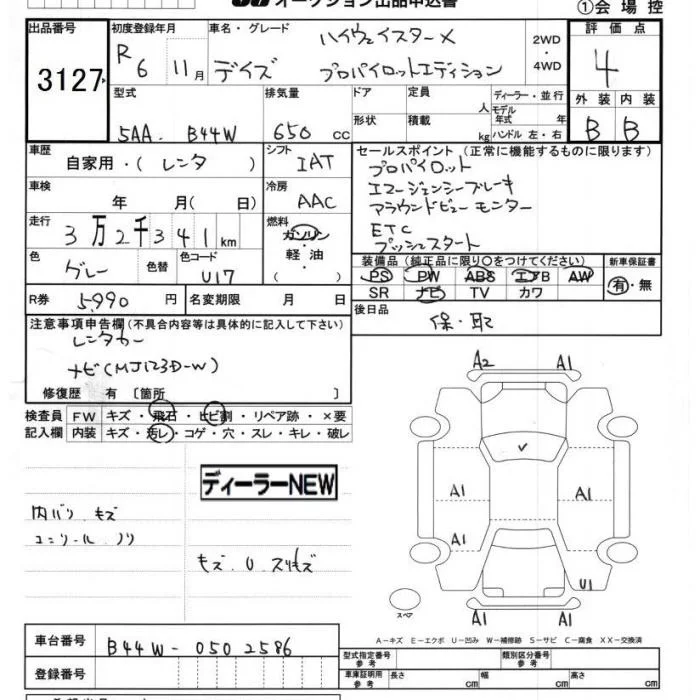 オークション出品申込書
①会場控
出品番号 初度登録年月 車名・グレード ハイウェイスターX 2WD ・ 4WD 評価点
3127 R6 11月 デイズ プロパイロットエディション 4
型式 排気量 ドア 定員 人 ディーラー・並行 外装 内装
5AA. B44W 650 cc 形状 積載 kg モデル年式 年 ハンドル 左・右 B B
車歴 自家用・(レンタ) シフト IAT セールスポイント(正常に機能するものに限ります)
プロパイロット
エマージェンシーブレーキ
車検 年 月(日) 冷房 AAC アラウンドビューモニター
ETC
走行 3万2千341km 燃料 ガソリン・軽油・( ) プッシュスタート
色 グレー 色替 色コード U17 装備品(純正品に限り○をつけてください) 新車保証書
PS PW ABS エアB AW 有・無
SR ナビ TV カワ
R券 5,990円 名変期限 月 日 後日品 保・取
注意事項申告欄(不具合内容等は具体的に記入して下さい)
レンタカー
ナビ(MJ123D-W)
修復歴 有〔箇所 〕
検査員記入欄 FW キズ・飛石・ヒビ割・リペア跡・×要
内装 キズ・汚レ・コゲ・穴・スレ・キレ・破レ
ディーラーNEW
内バリ.キズ
コンソール.ノリ
キズ.U.スリキズ
A2 A1
A1 A1
A1
U1
A1 A1
スペア
A-キズ E-エクボ U-凹み W-補修跡 S-サビ C-腐食 XX-交換済
車台番号 B44W-0502586
登録番号
型式指定番号 参考 類別区分番号 参考
車庫証明用 参考 長さ cm 幅 cm 高さ cm